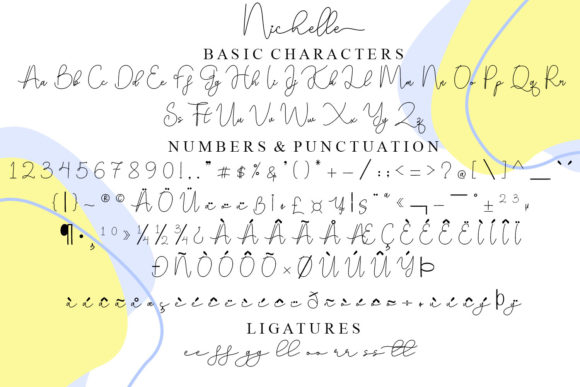 Nichelle
BASIC CHARACTERS
Aa Bb Cc Dd Ee Ff Gg Hh Ii Jj Kk Ll Mm Nn Oo Pp Qq Rr
Ss Tt Uu Vv Ww Xx Yy Zz
NUMBERS & PUNCTUATION
1 2 3 4 5 6 7 8 9 0 ! . . " # $ % & ' ( ) * + - / : ; < = > ? @ [ \ ] ^ _ `
{ | } ~ ® © Ä Ö Ü ä ö ü ß ¡ ¢ £ ¤ ¥ ¦ § ¨ ª « ¬ - ¯ ° ± ² ³ µ
¶ • ¸ ¹ º » ¼ ½ ¾ ¿ À Á Â Ã Å Æ Ç È É Ê Ë Ì Í Î Ï
Ð Ñ Ò Ó Ô Õ × Ø Ù Ú Û Ý Þ
LIGATURES
ee ff gg ll oo rr ss tt